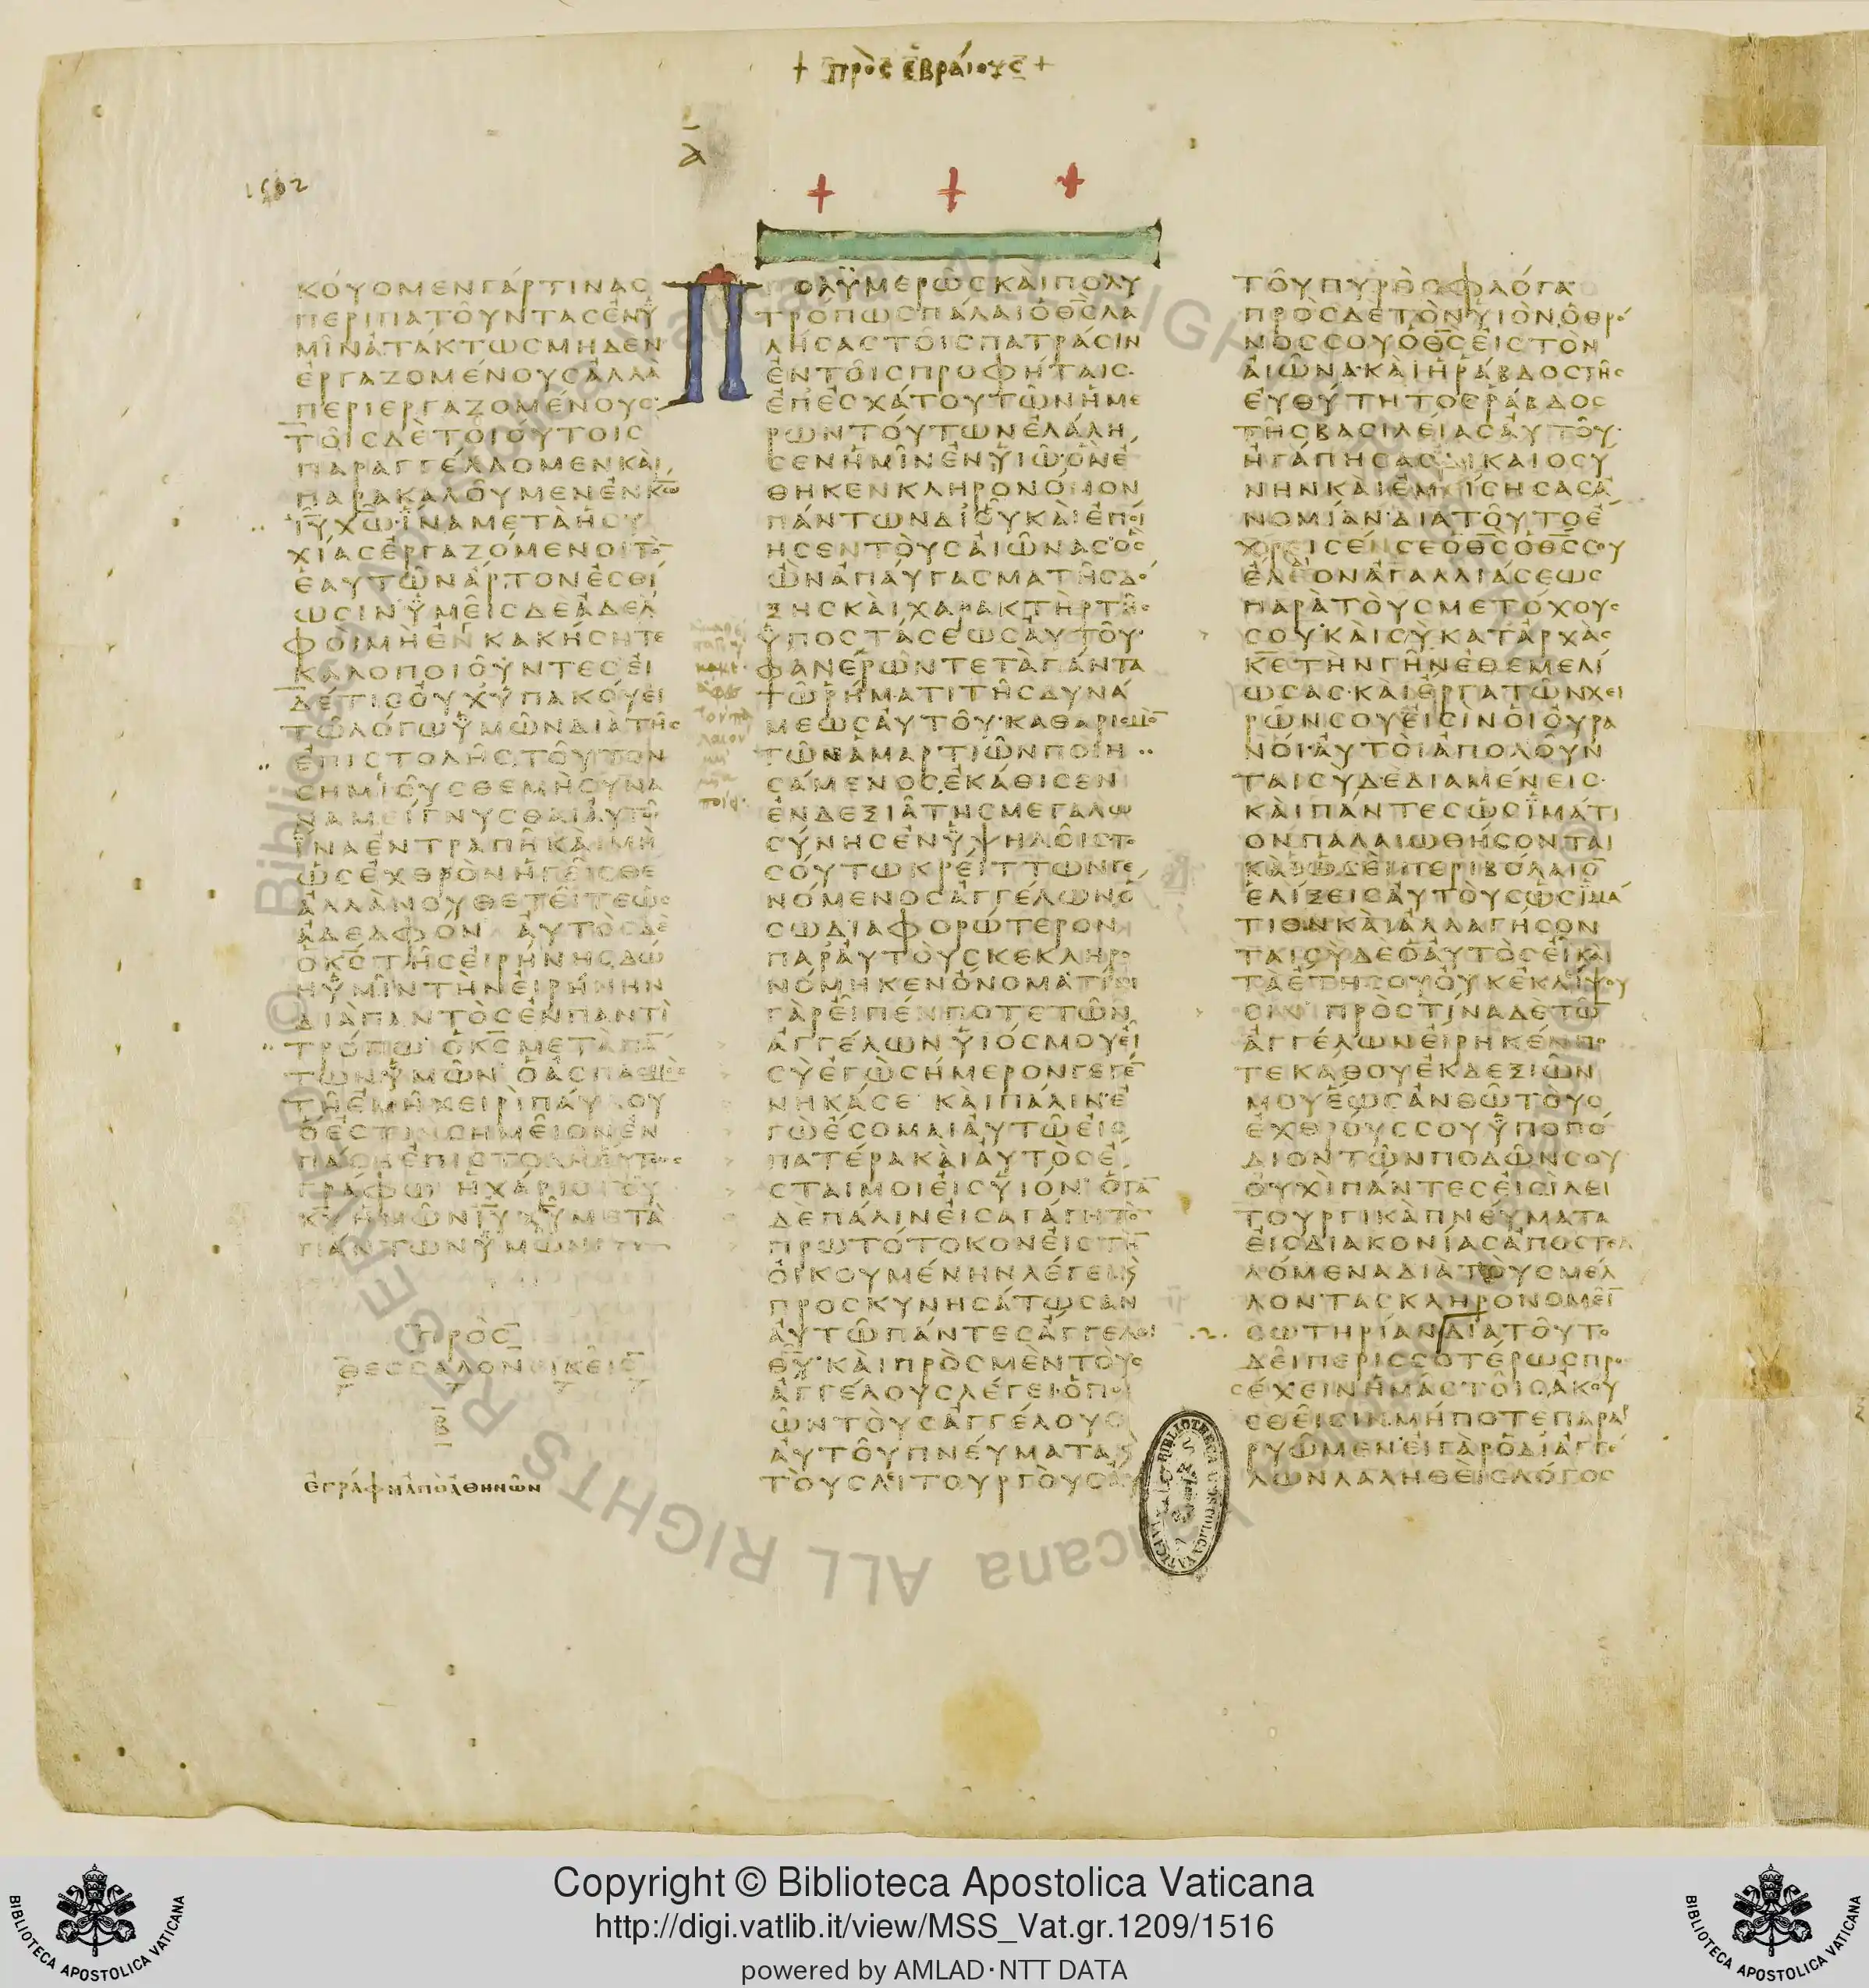 + πρὸς ἑβραίους +
α
1512
ΚΟΥΟΜΕΝΓΑΡΤΙΝΑΣ
ΠΕΡΙΠΑΤΟΥΝΤΑΣΕΝΥ
ΜΙΝΑΤΑΚΤΩΣΜΗΔΕΝ
ΕΡΓΑΖΟΜΕΝΟΥΣΑΛΛΑ
ΠΕΡΙΕΡΓΑΖΟΜΕΝΟΥΣ
ΤΟΙΣΔΕΤΟΙΟΥΤΟΙΣ
ΠΑΡΑΓΓΕΛΛΟΜΕΝΚΑΙ
ΠΑΡΑΚΑΛΟΥΜΕΝΕΝΚΩ
ΙΥΧΩΙΝΑΜΕΤΑΗΣΥ
ΧΙΑΣΕΡΓΑΖΟΜΕΝΟΙΤΟ
ΕΑΥΤΩΝΑΡΤΟΝΕΣΘΙ
ΩΣΙΝΥΜΕΙΣΔΕΑΔΕΛ
ΦΟΙΜΗΕΝΚΑΚΗΣΗΤΕ
ΚΑΛΟΠΟΙΟΥΝΤΕΣΕΙ
ΔΕΤΙΣΟΥΧΥΠΑΚΟΥΕΙ
ΤΩΛΟΓΩΥΜΩΝΔΙΑΤΗΣ
ΕΠΙΣΤΟΛΗΣΤΟΥΤΟΝ
ΣΗΜΙΟΥΣΘΕΜΗΣΥΝΑ
ΝΑΜΕΙΓΝΥΣΘΑΙΑΥΤΩ
ΙΝΑΕΝΤΡΑΠΗΚΑΙΜΗ
ΩΣΕΧΘΡΟΝΗΓΕΙΣΘΕ
ΑΛΛΑΝΟΥΘΕΤΕΙΤΕΩΣ
ΑΔΕΛΦΟΝ ΑΥΤΟΣΔΕ
ΟΚΣΤΗΣΕΙΡΗΝΗΣΔΩ
ΗΥΜΙΝΤΗΝΕΙΡΗΝΗΝ
ΔΙΑΠΑΝΤΟΣΕΝΠΑΝΤΙ
ΤΡΟΠΩ ΟΚΣΜΕΤΑΠΑ
ΤΩΝΥΜΩΝ ΟΑΣΠΑΣΜΟΣ
ΤΗΕΜΗΧΕΙΡΙΠΑΥΛΟΥ
ΟΕΣΤΙΝΣΗΜΕΙΟΝΕΝ
ΠΑΣΗΕΠΙΣΤΟΛΗΟΥΤΩΣ
ΓΡΑΦΩ ΗΧΑΡΙΣΤΟΥ
ΚΥΗΜΩΝΙΥΧΥΜΕΤΑ
ΠΑΝΤΩΝΥΜΩΝ
ΠΡΟΣ
ΘΕΣΣΑΛΟΝΕΙΚΕΙΣ
Β
ἐγράφη ἀπὸ ἀθηνῶν
Π ΟΛΥΜΕΡΩΣΚΑΙΠΟΛΥ
ΤΡΟΠΩΣΠΑΛΑΙΟΘΣΛΑ
ΛΗΣΑΣΤΟΙΣΠΑΤΡΑΣΙΝ
ΕΝΤΟΙΣΠΡΟΦΗΤΑΙΣ
ΕΠΕΣΧΑΤΟΥΤΩΝΗΜΕ
ΡΩΝΤΟΥΤΩΝΕΛΑΛΗ
ΣΕΝΗΜΙΝΕΝΥΙΩΟΝΕ
ΘΗΚΕΝΚΛΗΡΟΝΟΜΟΝ
ΠΑΝΤΩΝΔΙΟΥΚΑΙΕΠΟΙ
ΗΣΕΝΤΟΥΣΑΙΩΝΑΣΟΣ
ΩΝΑΠΑΥΓΑΣΜΑΤΗΣΔΟ
ΞΗΣΚΑΙΧΑΡΑΚΤΗΡΤΗΣ
ΥΠΟΣΤΑΣΕΩΣΑΥΤΟΥ
ΦΑΝΕΡΩΝΤΕΤΑΠΑΝΤΑ
ΤΩΡΗΜΑΤΙΤΗΣΔΥΝΑ
ΜΕΩΣΑΥΤΟΥΚΑΘΑΡΙΣΜΟ
ΤΩΝΑΜΑΡΤΙΩΝΠΟΙΗ
ΣΑΜΕΝΟΣΕΚΑΘΙΣΕΝ
ΕΝΔΕΞΙΑΤΗΣΜΕΓΑΛΩ
ΣΥΝΗΣΕΝΥΨΗΛΟΙΣΤΟ
ΣΟΥΤΩΚΡΕΙΤΤΩΝΓΕ
ΝΟΜΕΝΟΣΑΓΓΕΛΩΝΟ
ΣΩΔΙΑΦΟΡΩΤΕΡΟΝ
ΠΑΡΑΥΤΟΥΣΚΕΚΛΗΡΟ
ΝΟΜΗΚΕΝΟΝΟΜΑΤΙΝΙ
ΓΑΡΕΙΠΕΝΠΟΤΕΤΩΝ
ΑΓΓΕΛΩΝΥΙΟΣΜΟΥΕΙ
ΣΥΕΓΩΣΗΜΕΡΟΝΓΕΓΕ
ΝΗΚΑΣΕ ΚΑΙΠΑΛΙΝΕ
ΓΩΕΣΟΜΑΙΑΥΤΩΕΙΣ
ΠΑΤΕΡΑΚΑΙΑΥΤΟΣΕ
ΣΤΑΙΜΟΙΕΙΣΥΙΟΝ ΟΤΑ
ΔΕΠΑΛΙΝΕΙΣΑΓΑΓΗΤΟ
ΠΡΩΤΟΤΟΚΟΝΕΙΣΤΗ
ΟΙΚΟΥΜΕΝΗΝΛΕΓΕΙΚ
ΠΡΟΣΚΥΝΗΣΑΤΩΣΑΝ
ΑΥΤΩΠΑΝΤΕΣΑΓΓΕΛΟΙ
ΘΥΚΑΙΠΡΟΣΜΕΝΤΟΥΣ
ΑΓΓΕΛΟΥΣΛΕΓΕΙΟΠΟΙ
ΩΝΤΟΥΣΑΓΓΕΛΟΥΣ
ΑΥΤΟΥΠΝΕΥΜΑΤΑΚ
ΤΟΥΣΛΙΤΟΥΡΓΟΥΣΑΥ
ΤΟΥΠΥΡΟΣΦΛΟΓΑ
ΠΡΟΣΔΕΤΟΝΥΙΟΝΟΘΡΟ
ΝΟΣΣΟΥΟΘΣΕΙΣΤΟΝ
ΑΙΩΝΑΚΑΙΗΡΑΒΔΟΣΤΗΣ
ΕΥΘΥΤΗΤΟΣΡΑΒΔΟΣ
ΤΗΣΒΑΣΙΛΕΙΑΣΑΥΤΟΥ
ΗΓΑΠΗΣΑΣΔΙΚΑΙΟΣΥ
ΝΗΝΚΑΙΕΜΙΣΗΣΑΣΑ
ΝΟΜΙΑΝΔΙΑΤΟΥΤΟΕ
ΧΡΕΙΣΕΝΣΕΟΘΣΟΘΣΣΟΥ
ΕΛΕΟΝΑΓΑΛΛΙΑΣΕΩΣ
ΠΑΡΑΤΟΥΣΜΕΤΟΧΟΥΣ
ΣΟΥΚΑΙΣΥΚΑΤΑΡΧΑΣ
ΚΕΤΗΝΓΗΝΕΘΕΜΕΛΙ
ΩΣΑΣΚΑΙΕΡΓΑΤΩΝΧΕΙ
ΡΩΝΣΟΥΕΙΣΙΝΟΙΟΥΡΑ
ΝΟΙΑΥΤΟΙΑΠΟΛΟΥΝ
ΤΑΙΣΥΔΕΔΙΑΜΕΝΕΙΣ
ΚΑΙΠΑΝΤΕΣΩΣΙΜΑΤΙ
ΟΝΠΑΛΑΙΩΘΗΣΟΝΤΑΙ
ΚΑΙΩΣΕΙΠΕΡΙΒΟΛΑΙΟ
ΕΛΙΞΕΙΣΑΥΤΟΥΣΩΣΙΜΑ
ΤΙΟΝΚΑΙΑΛΛΑΓΗΣΟΝ
ΤΑΙΣΥΔΕΟΑΥΤΟΣΕΙΚΑΙ
ΤΑΕΤΗΣΟΥΟΥΚΕΚΛΙΨΟΥ
ΣΙΝ ΠΡΟΣΤΙΝΑΔΕΤΩ
ΑΓΓΕΛΩΝΕΙΡΗΚΕΝΠΟ
ΤΕΚΑΘΟΥΕΚΔΕΞΙΩΝ
ΜΟΥΕΩΣΑΝΘΩΤΟΥΣ
ΕΧΘΡΟΥΣΣΟΥΥΠΟΠΟ
ΔΙΟΝΤΩΝΠΟΔΩΝΣΟΥ
ΟΥΧΙΠΑΝΤΕΣΕΙΣΙΛΕΙ
ΤΟΥΡΓΙΚΑΠΝΕΥΜΑΤΑ
ΕΙΣΔΙΑΚΟΝΙΑΣΑΠΟΣΤΕΛ
ΛΟΜΕΝΑΔΙΑΤΟΥΣΜΕΛ
ΛΟΝΤΑΣΚΛΗΡΟΝΟΜΕΙ
ΣΩΤΗΡΙΑΝΔΙΑΤΟΥΤΟ
ΔΕΙΠΕΡΙΣΣΟΤΕΡΩΣΠΡΟ
ΣΕΧΕΙΝΗΜΑΣΤΟΙΣΑΚΟΥ
ΣΘΕΙΣΙΝΜΗΠΟΤΕΠΑΡΑ
ΡΥΩΜΕΝΕΙΓΑΡΟΔΙΑΓΓΕ
ΛΩΝΛΑΛΗΘΕΙΣΛΟΓΟΣ
Copyright © Biblioteca Apostolica Vaticana
http://digi.vatlib.it/view/MSS_Vat.gr.1209/1516
powered by AMLAD·NTT DATA
BIBLIOTECA APOSTOLICA VATICANA
BIBLIOTECA APOSTOLICA VATICANA